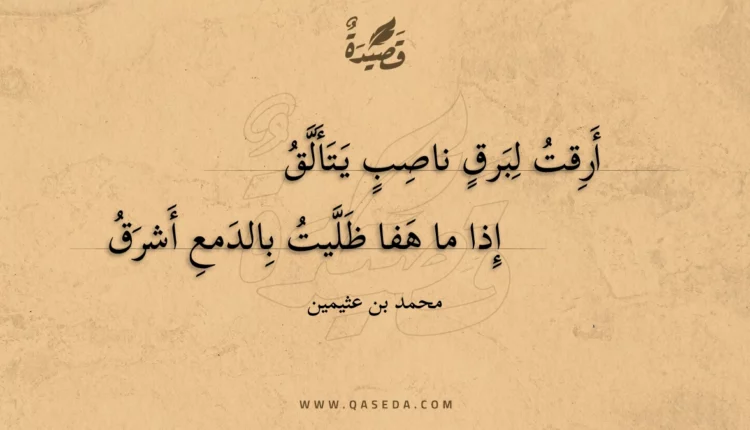 قَصِيدَةٌ
أَرِقتُ لِبَرقٍ ناصِبٍ يَتَأَلَّقُ
إِذا ما هَفا ظَلَّيتُ بِالدَمعِ أَشرَقُ
محمد بن عثيمين
WWW.QASEDA.COM